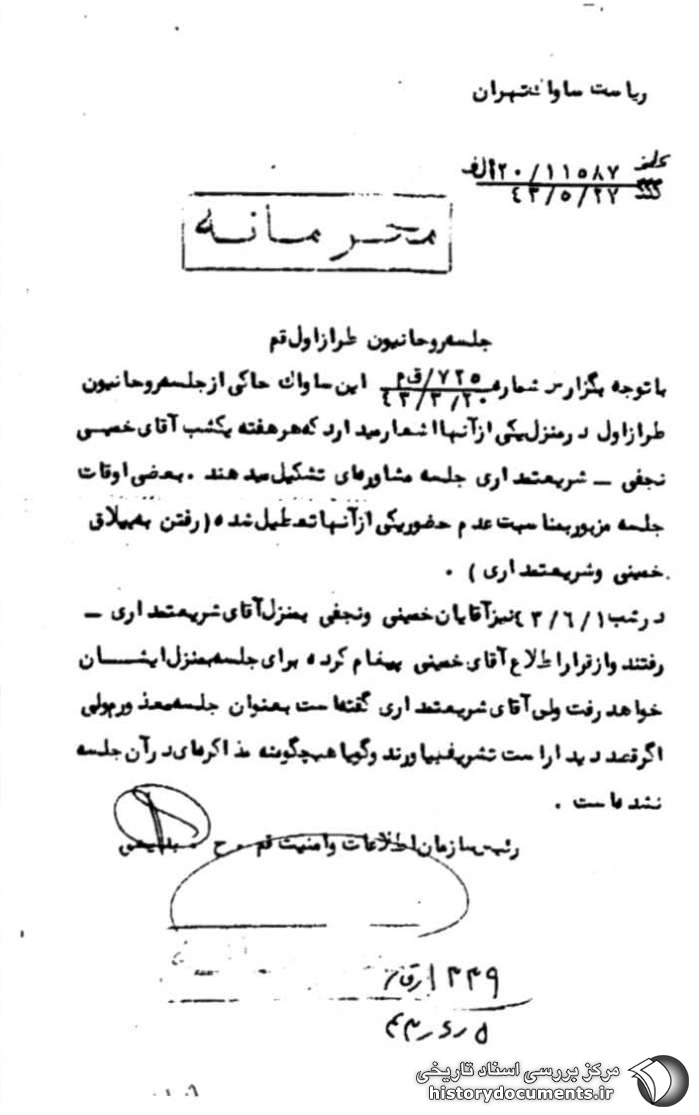 ریاست ساواک تهران
عطف ۱۱۵۸۷/۲۰الف
۴۳/۵/۲۷
محرمانه
جلسه روحانیون طراز اول قم
با توجه بگزارش شماره ۷۲۵/ق م این ساواک حاکی از جلسه روحانیون
۴۳/۳/۲۰
طراز اول در منزل یکی از آنها اشعار میدارد که هر هفته یکشب آقای خمینی
نجفی – شریعتمداری جلسه مشاوره‌ای تشکیل میدهند . بعضی اوقات
جلسه مزبور بمناسبت عدم حضور یکی از آنها تعطیل شده ( رفتن به ییلاق
خمینی و شریعتمداری ) .
در شب ۴۳/۶/۱ نیز آقایان خمینی و نجفی بمنزل آقای شریعتمداری –
رفتند و از قرار اطلاع آقای خمینی پیغام کرده برای جلسه بمنزل ایشان
خواهد رفت ولی آقای شریعتمداری گفته است بعنوان جلسه معذورم ولی
اگر قصد دیدار است تشریف بیاورند و گویا هیچگونه مذاکره‌ای در آن جلسه
نشده است .
رئیس سازمان اطلاعات و امنیت قم . ح . بدیعی
مرکز بررسی اسناد تاریخی
historydocuments.ir